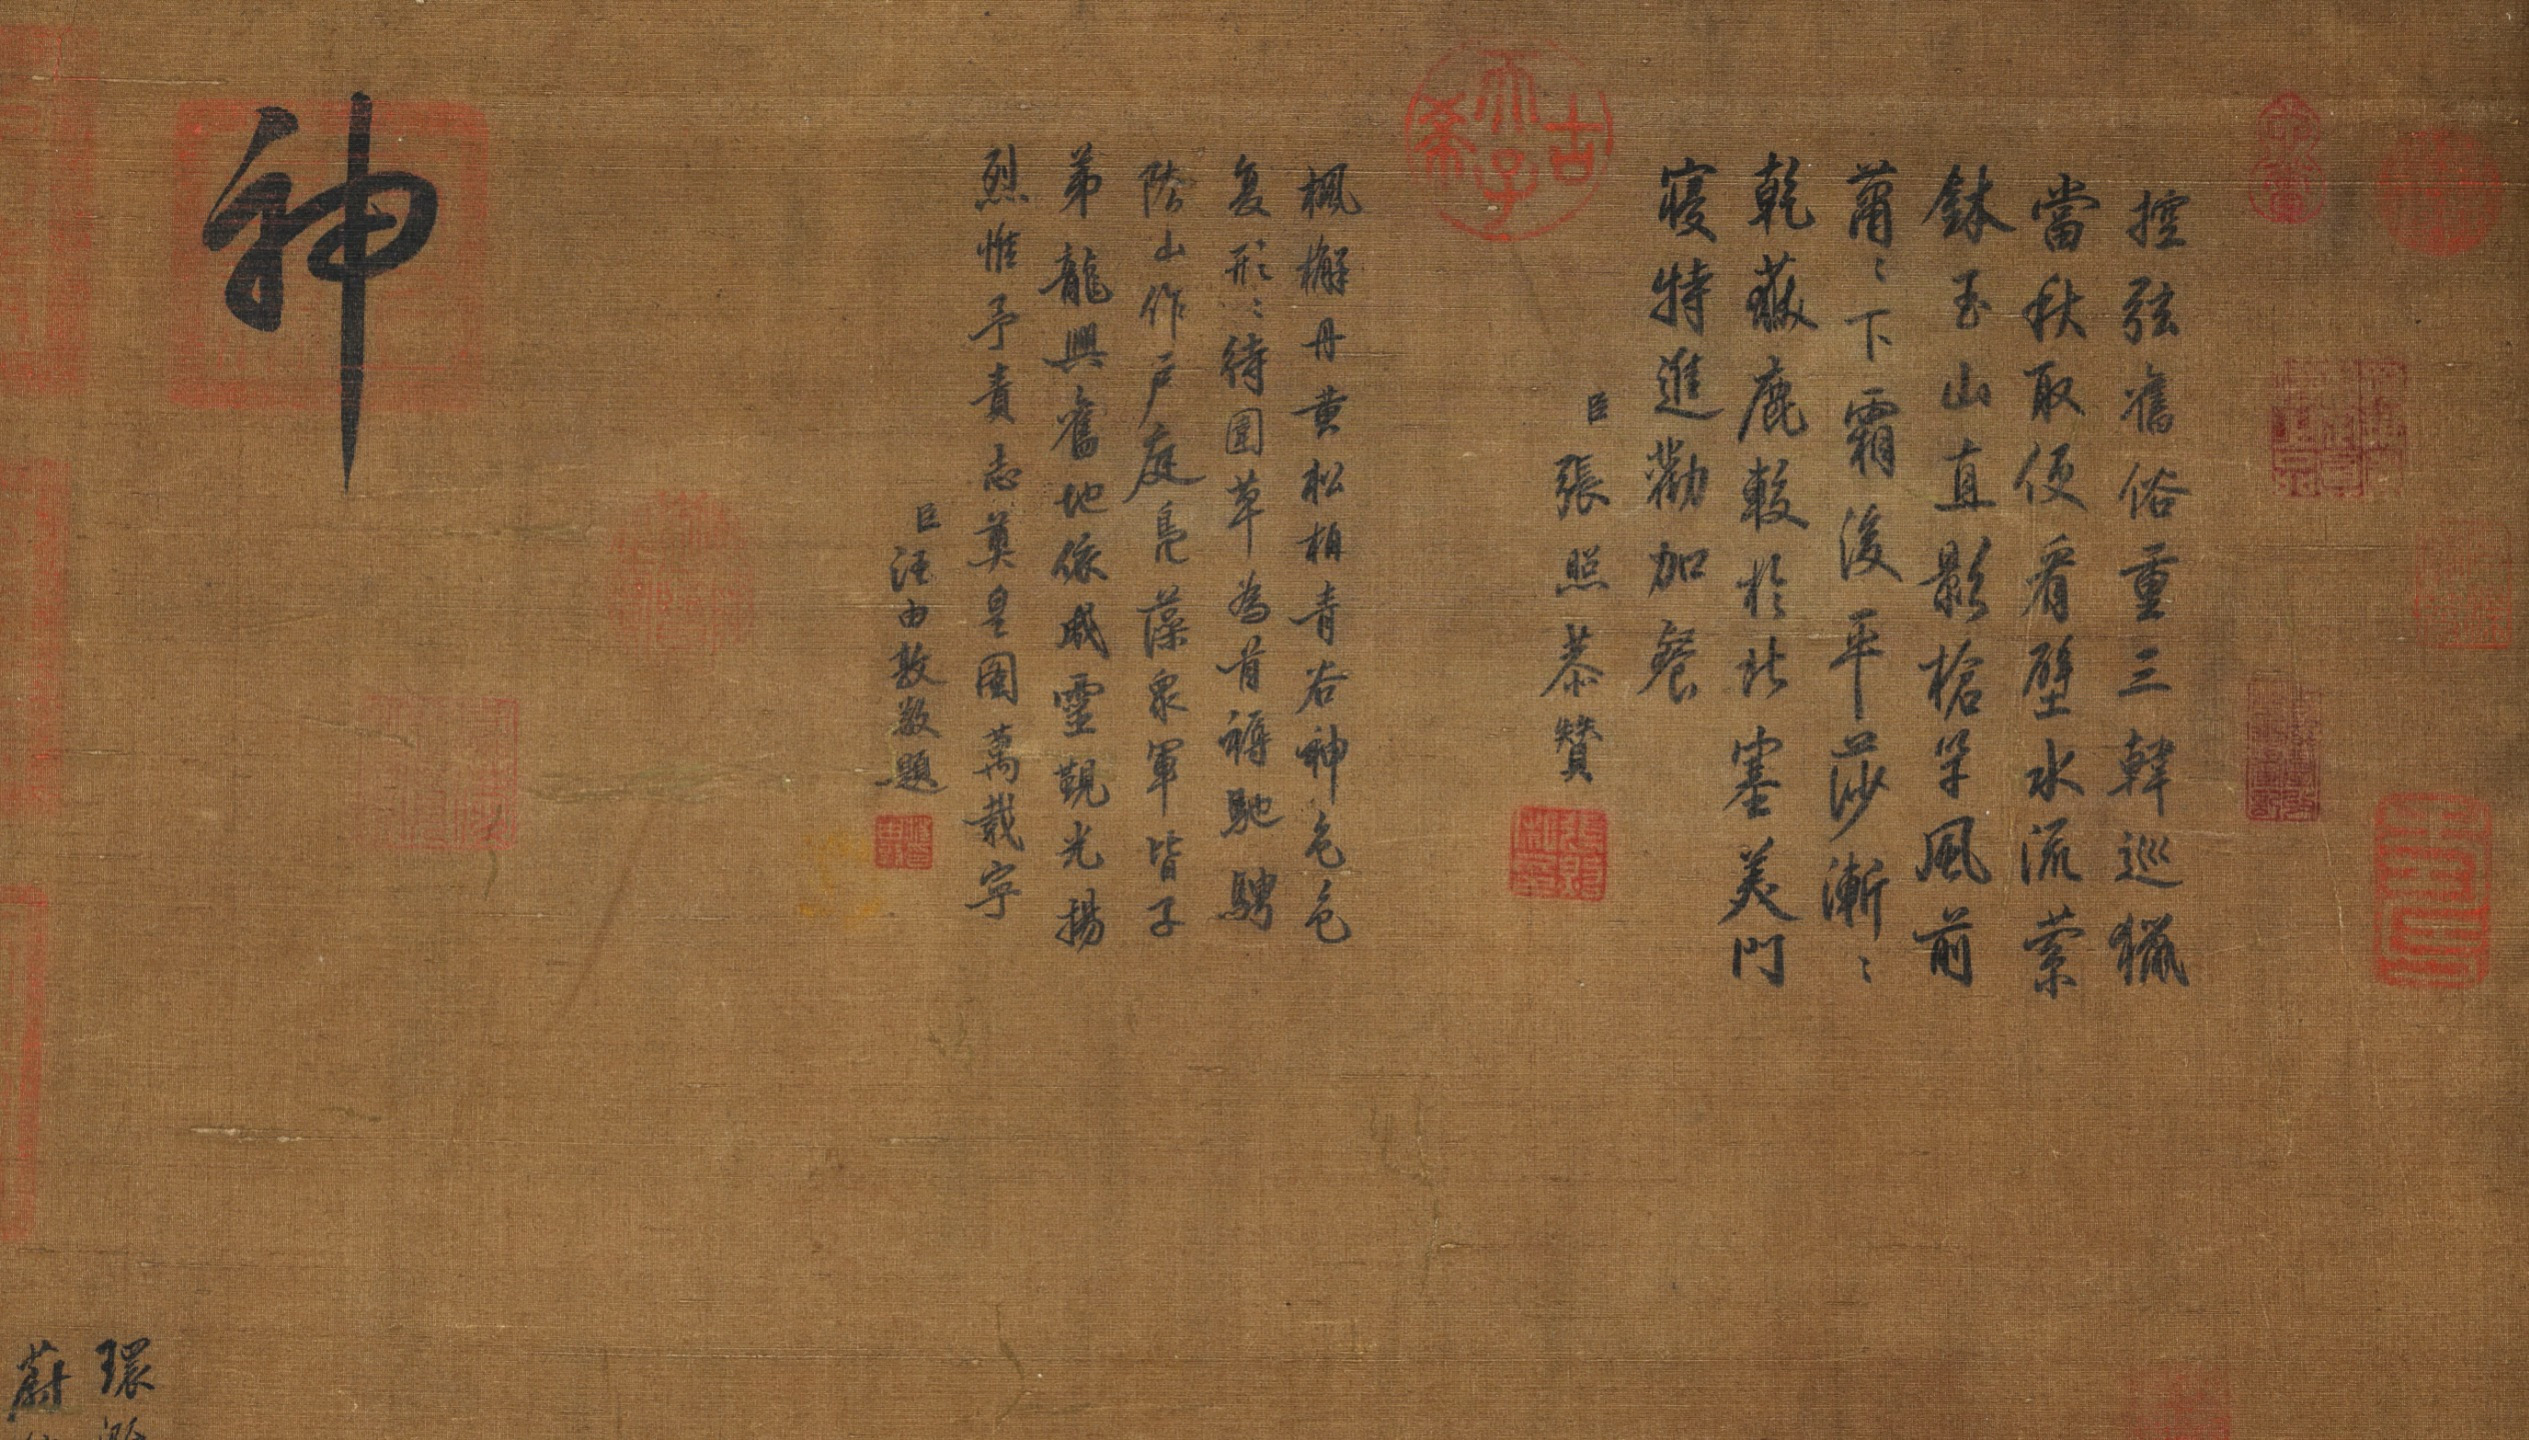 控弦舊俗重三韓巡獵
當秋取便看壁水流縈
鉢玉山直影槍竿風前
蕭〻下霜後平莎漸〻
乾蔌鹿較於北塞美門
寢特進勸加餐
臣張照恭贊
古希天子
楓檞丹黄松柏青谷神色色
复形〻待圍草為有褥馳騁
陰山作戶庭鳧藻衆軍皆子
弟龍興舊地依威靈覲光揚
烈惟予責志奠皇圖萬載寧
臣汪由敦敬題
神
環
蔚